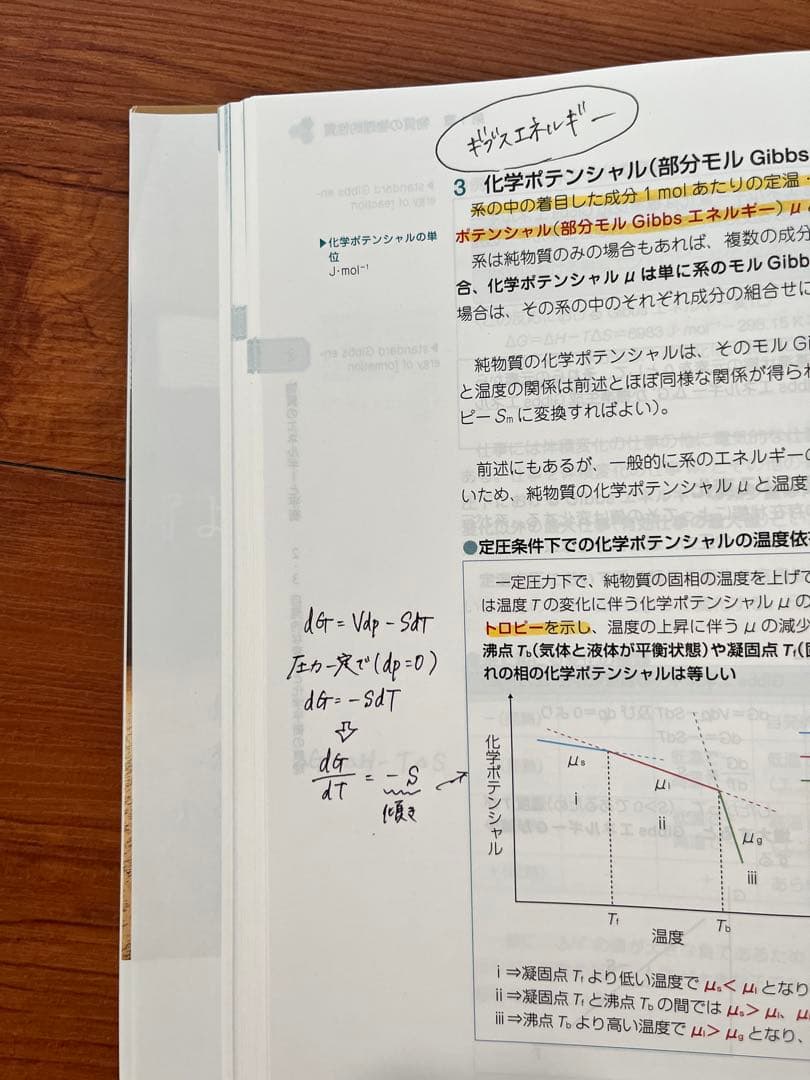 ギブスエネルギー
3 化学ポテンシャル(部分モル Gibbs
系の中の着目した成分1 molあたりの定温・
ポテンシャル(部分モル Gibbs エネルギー) μ
▶化学ポテンシャルの単
位
J·mol⁻¹
系は純物質のみの場合もあれば、複数の成分
合、化学ポテンシャル μ は単に系のモル Gibb
場合は、その系の中のそれぞれ成分の組合せに
純物質の化学ポテンシャルは、そのモル Gi
と温度の関係は前述とほぼ同様な関係が得られ
ピー Sm に変換すればよい)。
前述にもあるが、一般的に系のエネルギーの
いため、純物質の化学ポテンシャル μ と温度
●定圧条件下での化学ポテンシャルの温度依
一定圧力下で、純物質の固相の温度を上げて
は温度 T の変化に伴う化学ポテンシャル μ の
トロピーを示し、温度の上昇に伴う μ の減少
沸点 Tb(気体と液体が平衡状態)や凝固点 Tf(固
れの相の化学ポテンシャルは等しい
dG = Vdp − SdT
圧力一定で(dp=0)
dG = −SdT
⇩
dG/dT = −S →
傾き
化学ポテンシャル
μs
μl
μg
i
ii
iii
Tf
Tb
温度
i ⇒凝固点 Tf より低い温度で μs< μl となり
ii ⇒凝固点 Tf と沸点 Tb の間では μs> μl、μ
iii ⇒沸点 Tb より高い温度で μl> μg となり、